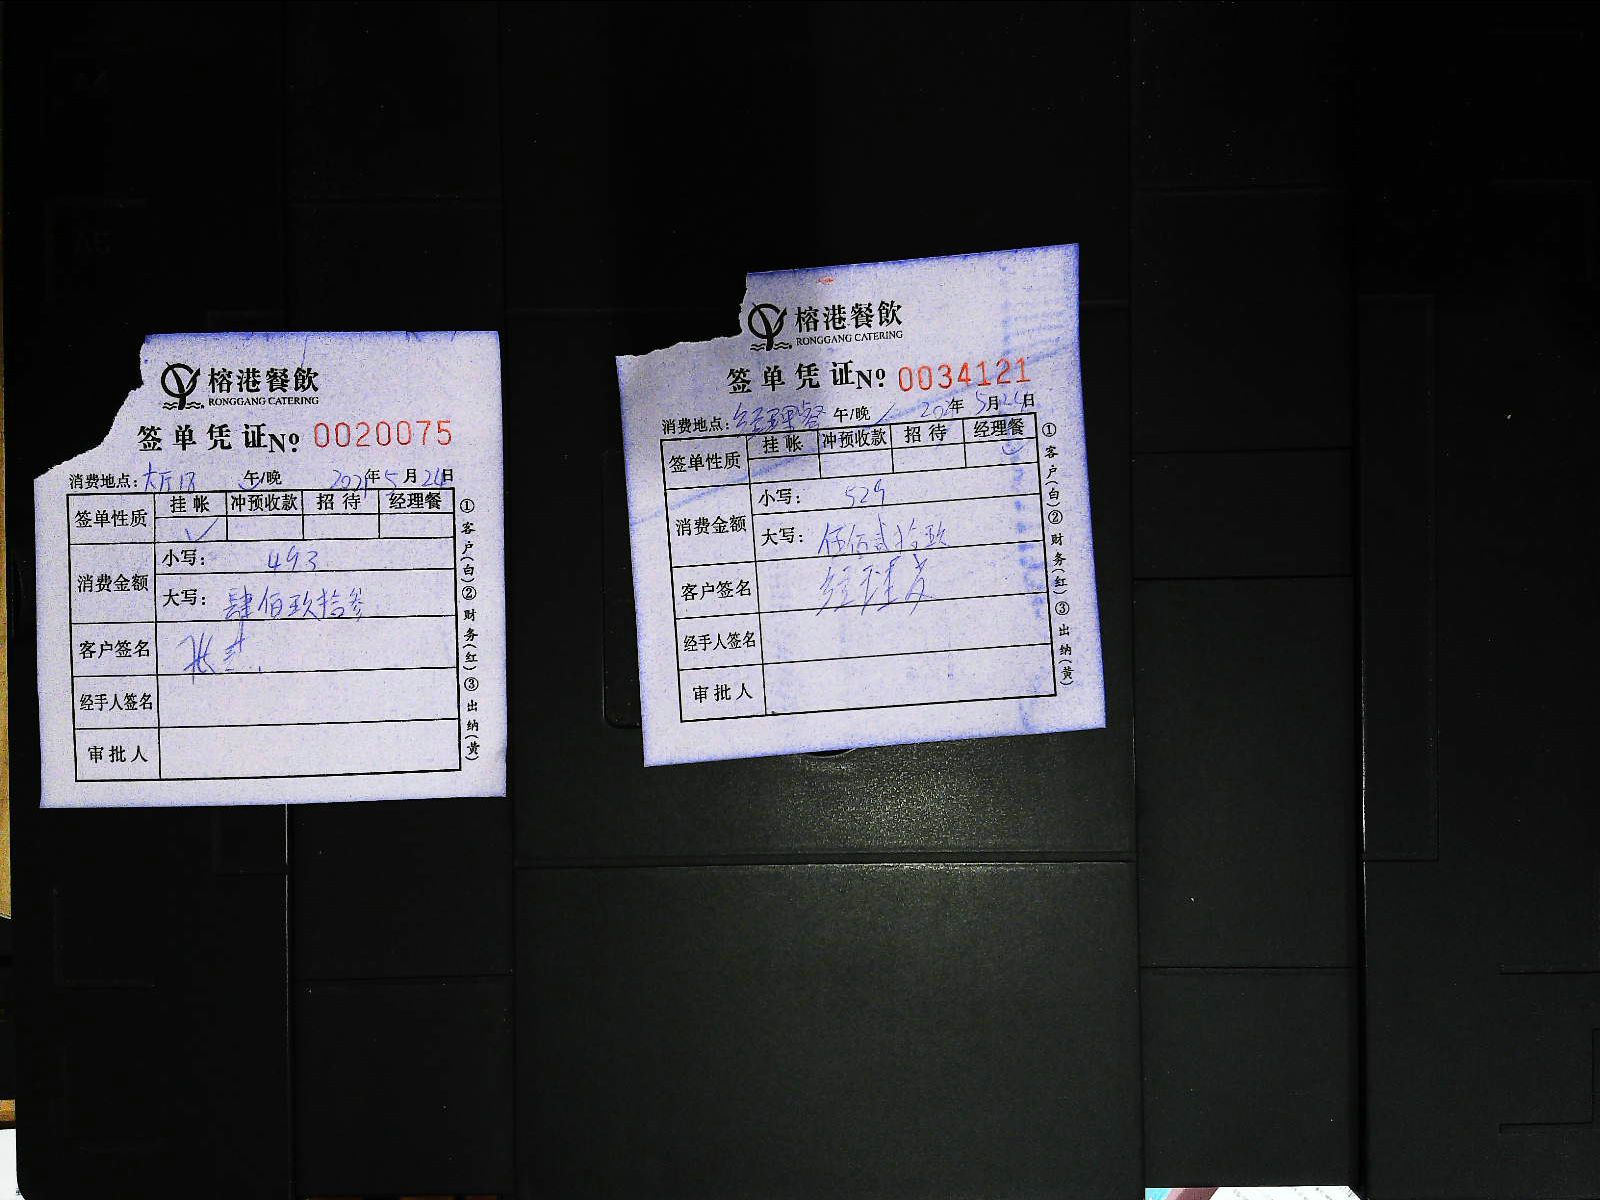 榕港餐飲
RONGGANG CATERING
签单凭证 № 0020075
消费地点：大厅18 午/晚 2021年5月24日
签单性质 挂帐 冲预收款 招待 经理餐
✓
消费金额
小写：493
大写：肆佰玖拾叁
客户签名
经手人签名
审批人
①客户（白）②财务（红）③出纳（黄）
榕港餐飲
RONGGANG CATERING
签单凭证 № 0034121
消费地点：经理餐 午/晚 202年5月24日
签单性质 挂帐 冲预收款 招待 经理餐
消费金额
小写：529
大写：伍佰贰拾玖
客户签名
经手人签名
审批人
①客户（白）②财务（红）③出纳（黄）
A4
A5